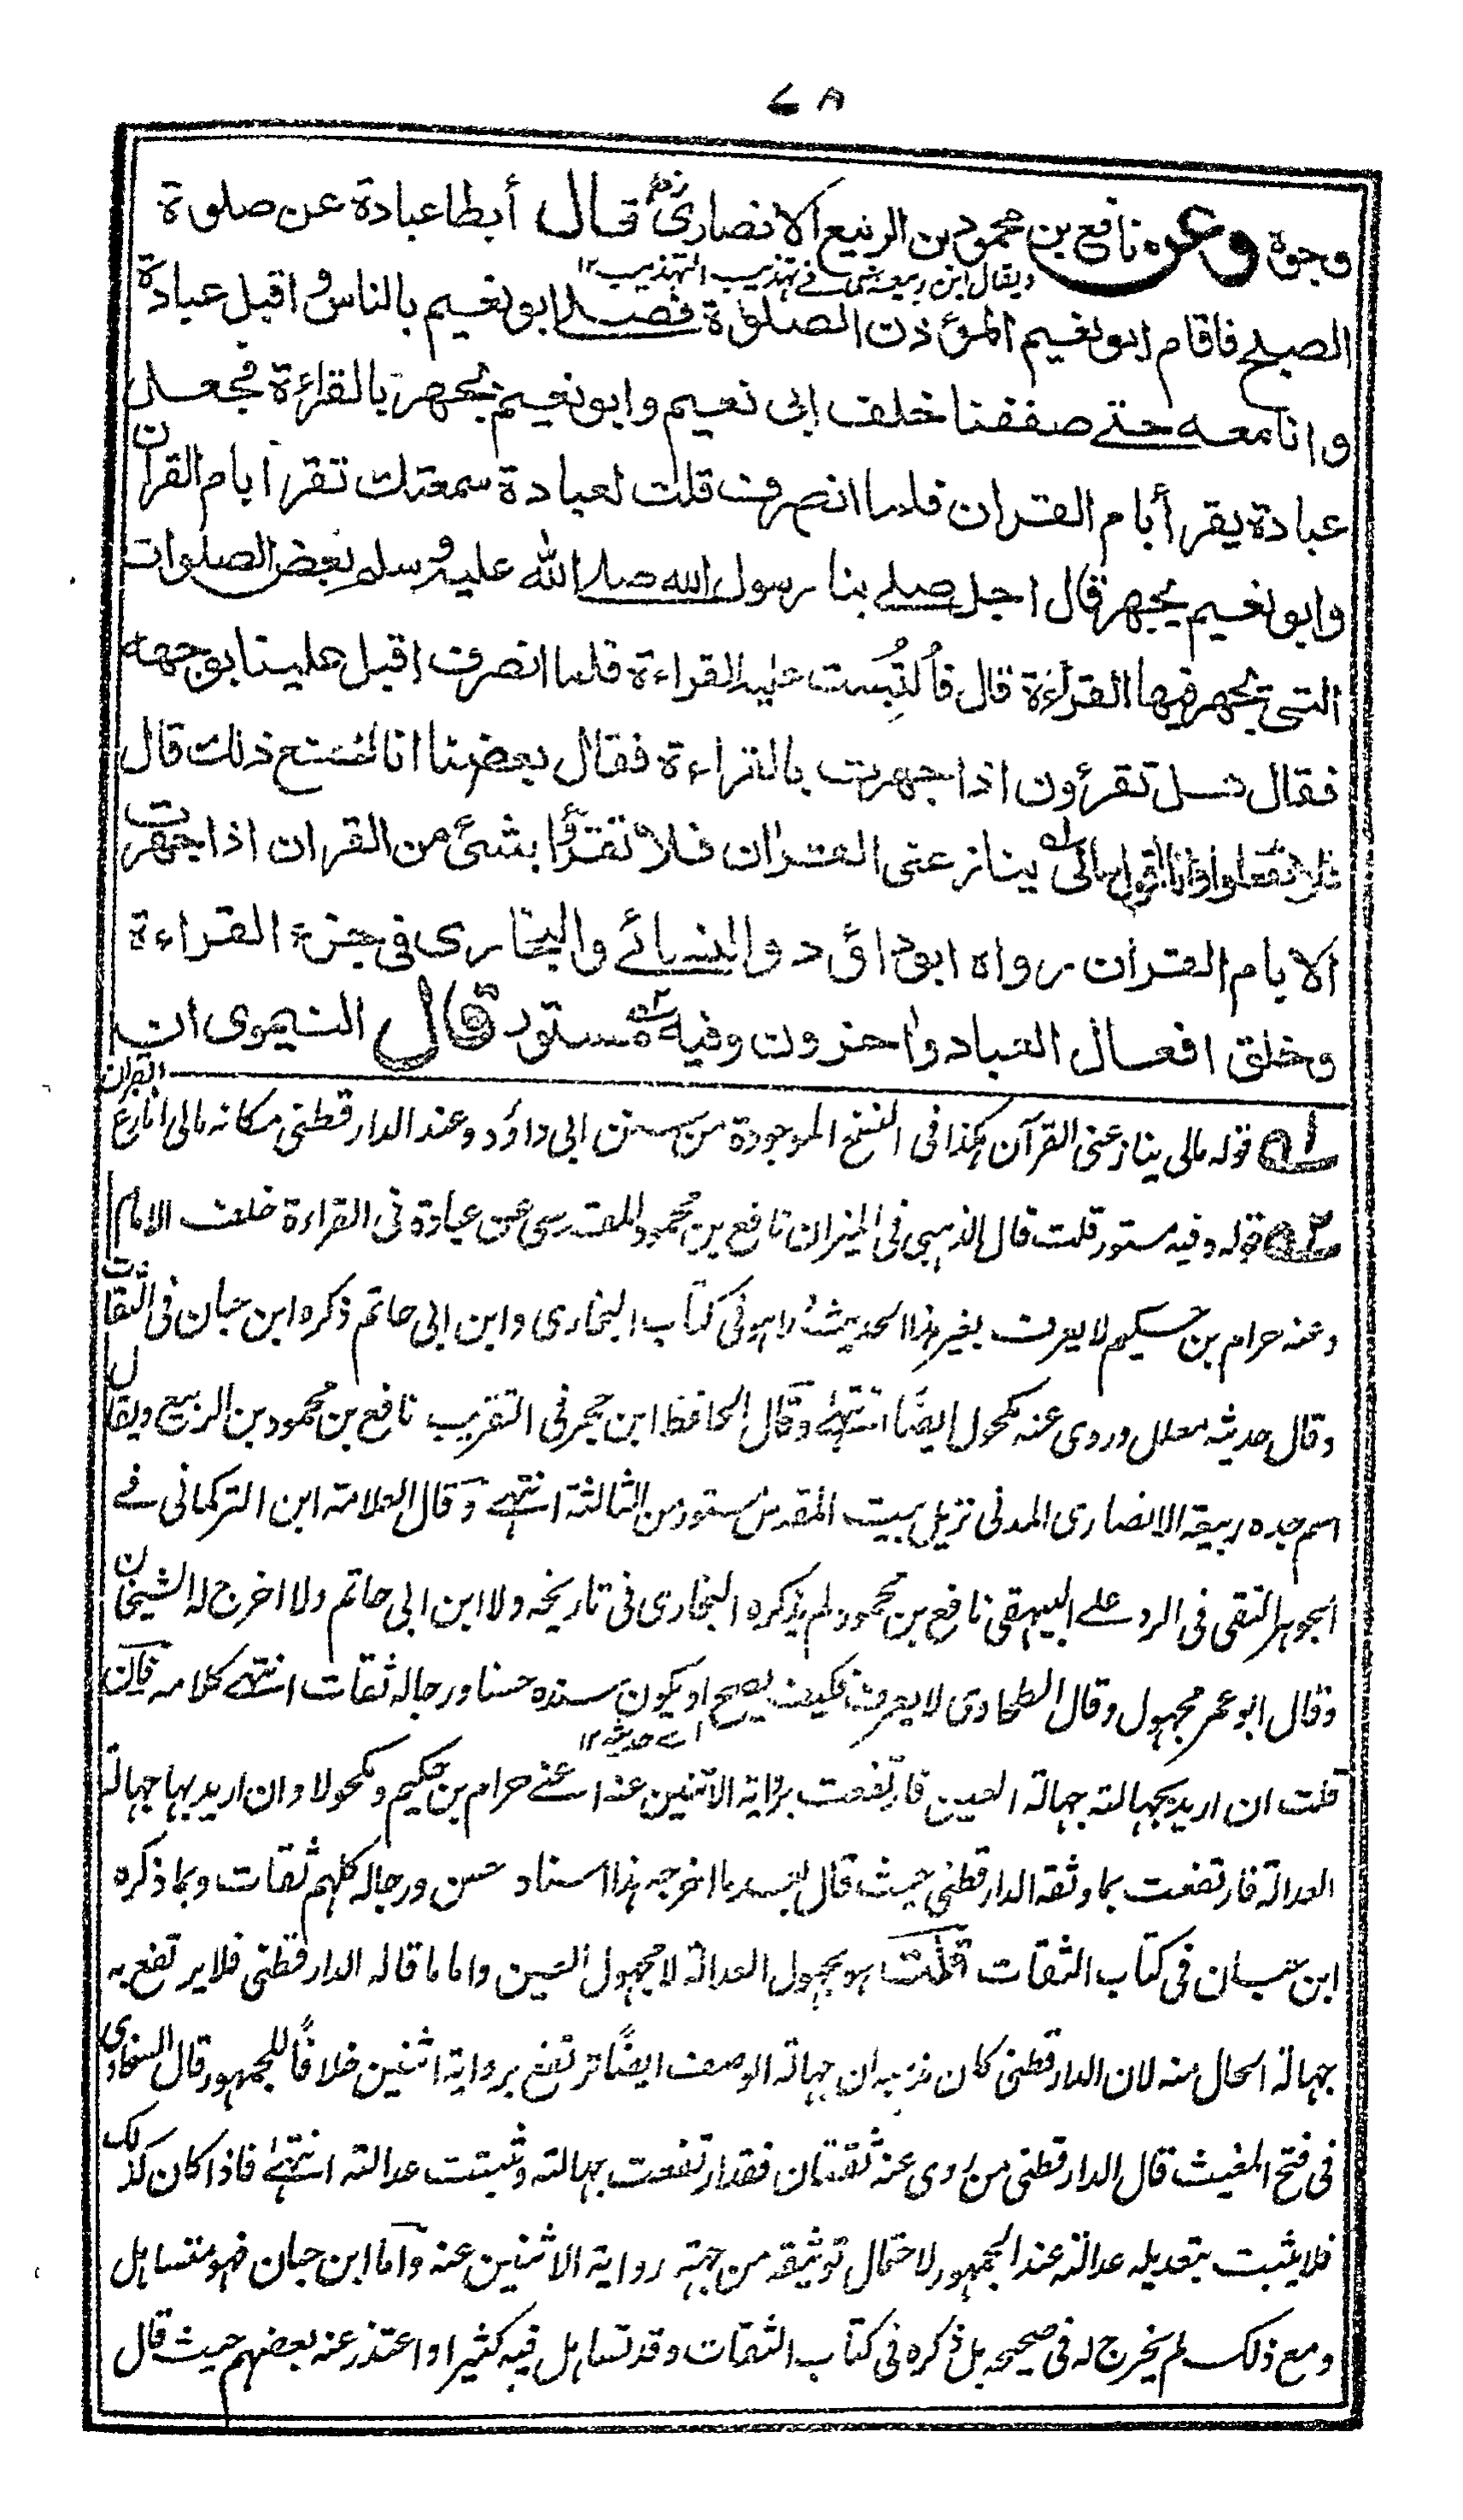 ٧٨
وجوه وعن نافع بن محمود بن الربيع الانصاري رض قال أبطا عبادة عن صلوة
ويقال ابن ربيعة شى فے تهذيب التهذيب ١٢
الصبح فاقام ابو نعيم المؤذن الصلوة فصلے ابو نعيم بالناس و اقبل عبادة
وانا معه حتے صففنا خلف ابى نعيم وابو نعيم يجهر بالقراءة فجعل
عبادة يقرأ بام القران فلما انصرف قلت لعبادة سمعتك تقرأ بام القران
وابو نعيم يجهر قال اجل صلے بنا رسول الله صلے الله عليه وسلم بعض الصلوات
التى يجهر فيها القراءة قال فالتُبِست عليه القراءة فلما انصرف اقبل علينا بوجهه
فقال هل تقرءون اذا جهرت بالقراءة فقال بعضنا انا لنصنع ذلك قال
فلا تفعلوا وانا اقول مالى ١ه ينازعنى القران فلا تقرؤا بشئ من القران اذا جهرت
الا بام القران رواه ابو داؤد والنسائے والبخارى فى جزء القراءة
وخلق افعال العباد واخرون وفيه ٢ه مستور قال النيموى ان
١ه قوله مالى ينازعنى القرآن هكذا فى النسخ الموجودة من سنن ابى داؤد وعند الدار قطنى مكانه مالى انازع القران
٢ه قوله وفيه مستور قلت قال الذهبى فى الميزان نافع بن محمود المقدسى عن عبادة فى القراءة خلف الامام
وعنه حرام بن حكيم لا يعرف بغير هذا الحديث ولا هو فى كتاب البخارى وابن ابى حاتم ذكره ابن حبان فى الثقات
وقال حديثه معلل وروى عنه مكحول ايضًا انتهےٰ وقال الحافظ ابن حجر فى التقريب نافع بن محمود بن الربيع ويقال
اسم جده ربيعة الانصارى المدنى نزيل بيت المقدس مستور من الثالثة انتهے وقال العلامة ابن التركمانى فے
الجوهر النقى فى الرد علے البيهقى نافع بن محمود لم يذكره البخارى فى تاريخه ولا ابن ابى حاتم ولا اخرج له الشيخان
وقال ابو عمر مجهول وقال الطحاوى لا يعرف فكيف يصح او يكون سنده حسنا ورجاله ثقات انتهے كلامه فان
اے حديثه ١٢
قلت ان اريد بجهالته جهالة العين فارتفعت برواية الاثنين عنه اعنے حرام بن حكيم ومكحولا وان اريد بها جهالة
العدالة فارتفعت بما وثقه الدار قطنى حيث قال بعد ما اخرجه هذا اسناد حسن ورجاله كلهم ثقات وبما ذكره
ابن حبان فى كتاب الثقات قلت هو مجهول العدالة لا مجهول العين واما ما قاله الدار قطنى فلا يرتفع به
جهالة الحال منه لان الدار قطنى كان مذهبه ان جهالة الوصف ايضًا ترتفع برواية اثنين خلافًا للجمهور قال السخاوى
فى فتح المغيث قال الدار قطنى من روى عنه ثقتان فقد ارتفعت جهالته وثبتت عدالته انتهےٰ فاذا كان كذلك
فلا يثبت بتعديله عدالته عند الجمهور لاحتمال توثيقه من جهة رواية الاثنين عنه واما ابن حبان فهو متساهل
ومع ذلك لم يخرج له فى صحيحه بل ذكره فى كتاب الثقات وقد تساهل فيه كثيرا واعتذر عنه بعضهم حيث قال